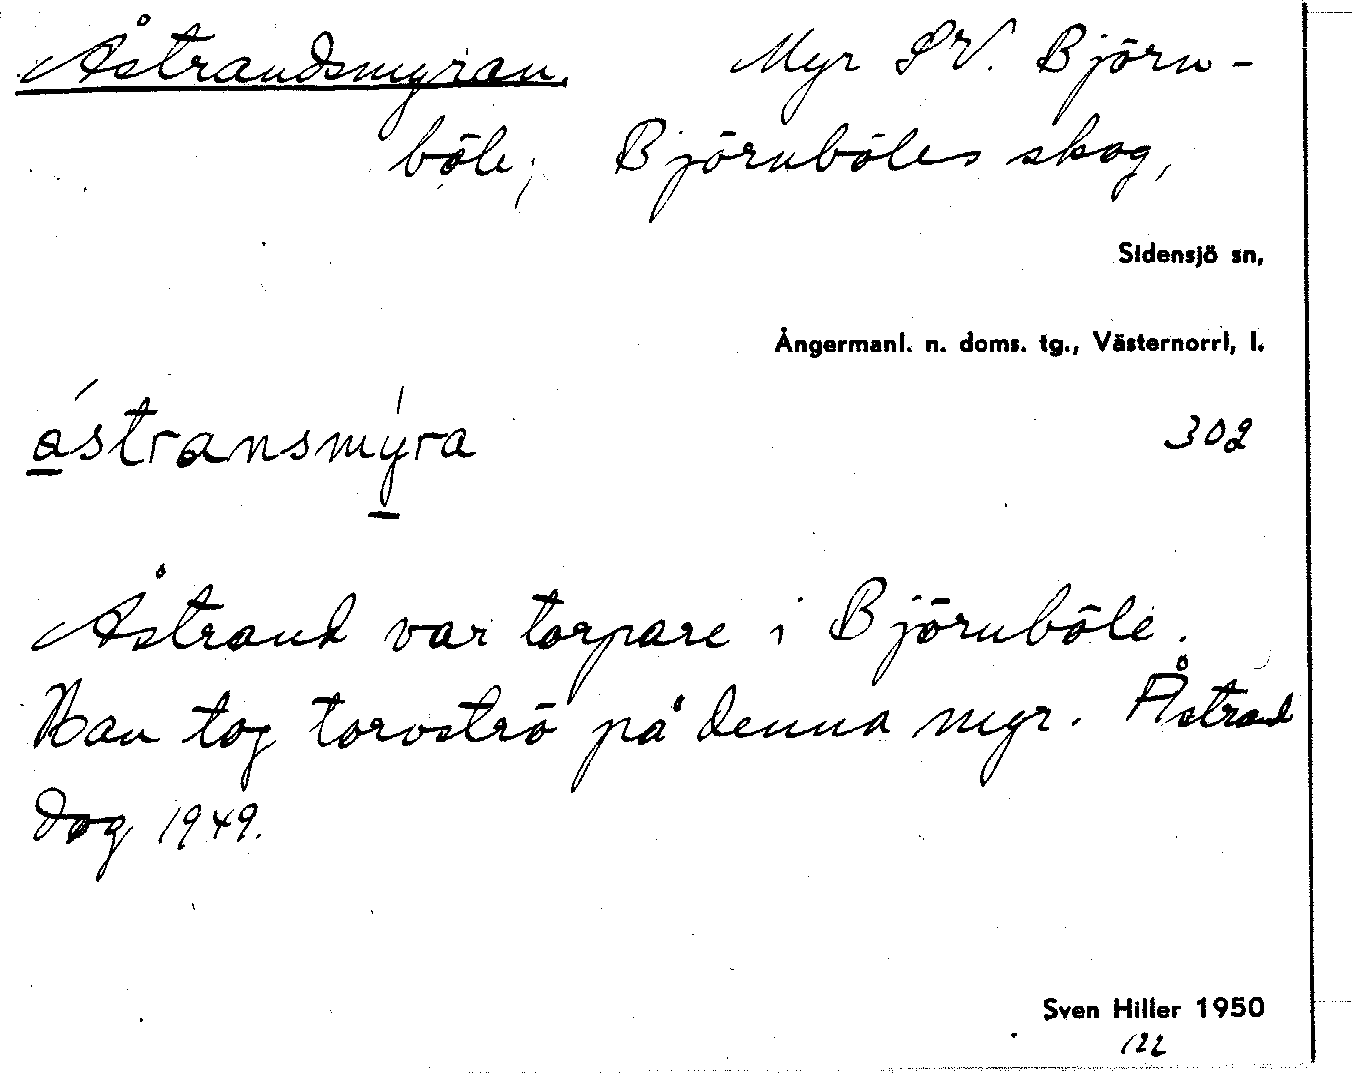 Åstrandsmyran. Myr SV. Björn-
böle, Björnböles skog,
Sidensjö sn,
Ångermanl. n. doms. tg., Västernorrl, l.
åstransmýra 302
Åstrand var torpare i Björnböle.
Han tog torvströ på denna myr. Åstrand
dog 1949.
Sven Hiller 1950
122